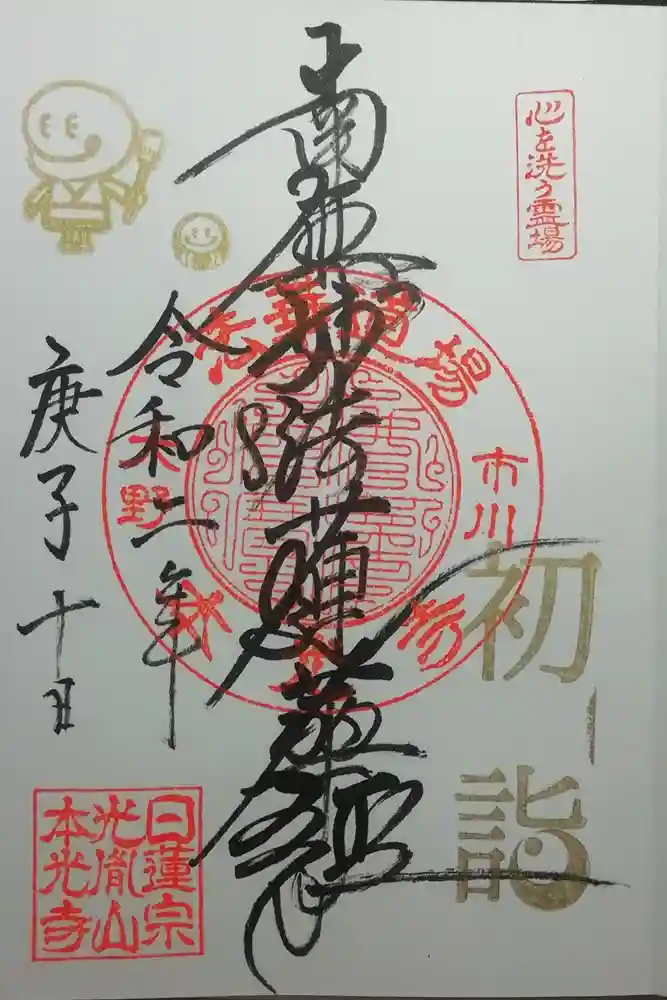 心を洗う霊場
初詣
南無妙法蓮華経
令和二年
庚子 十日
市川
日蓮宗
光胤山
本光寺